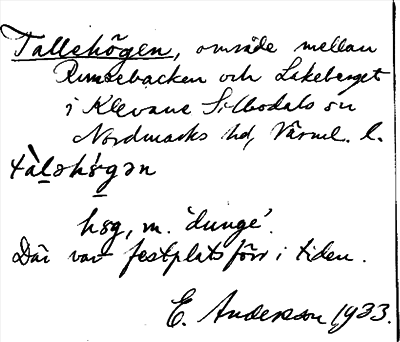 Tallehögen, område mellan
Rumsebacken och Lekeberget
i Klevane Silbodals sn
Nordmarks hd, Värml. l.
hög, m. 'dunge'.
Där var festplats förr i tiden.
E. Anderson 1933.